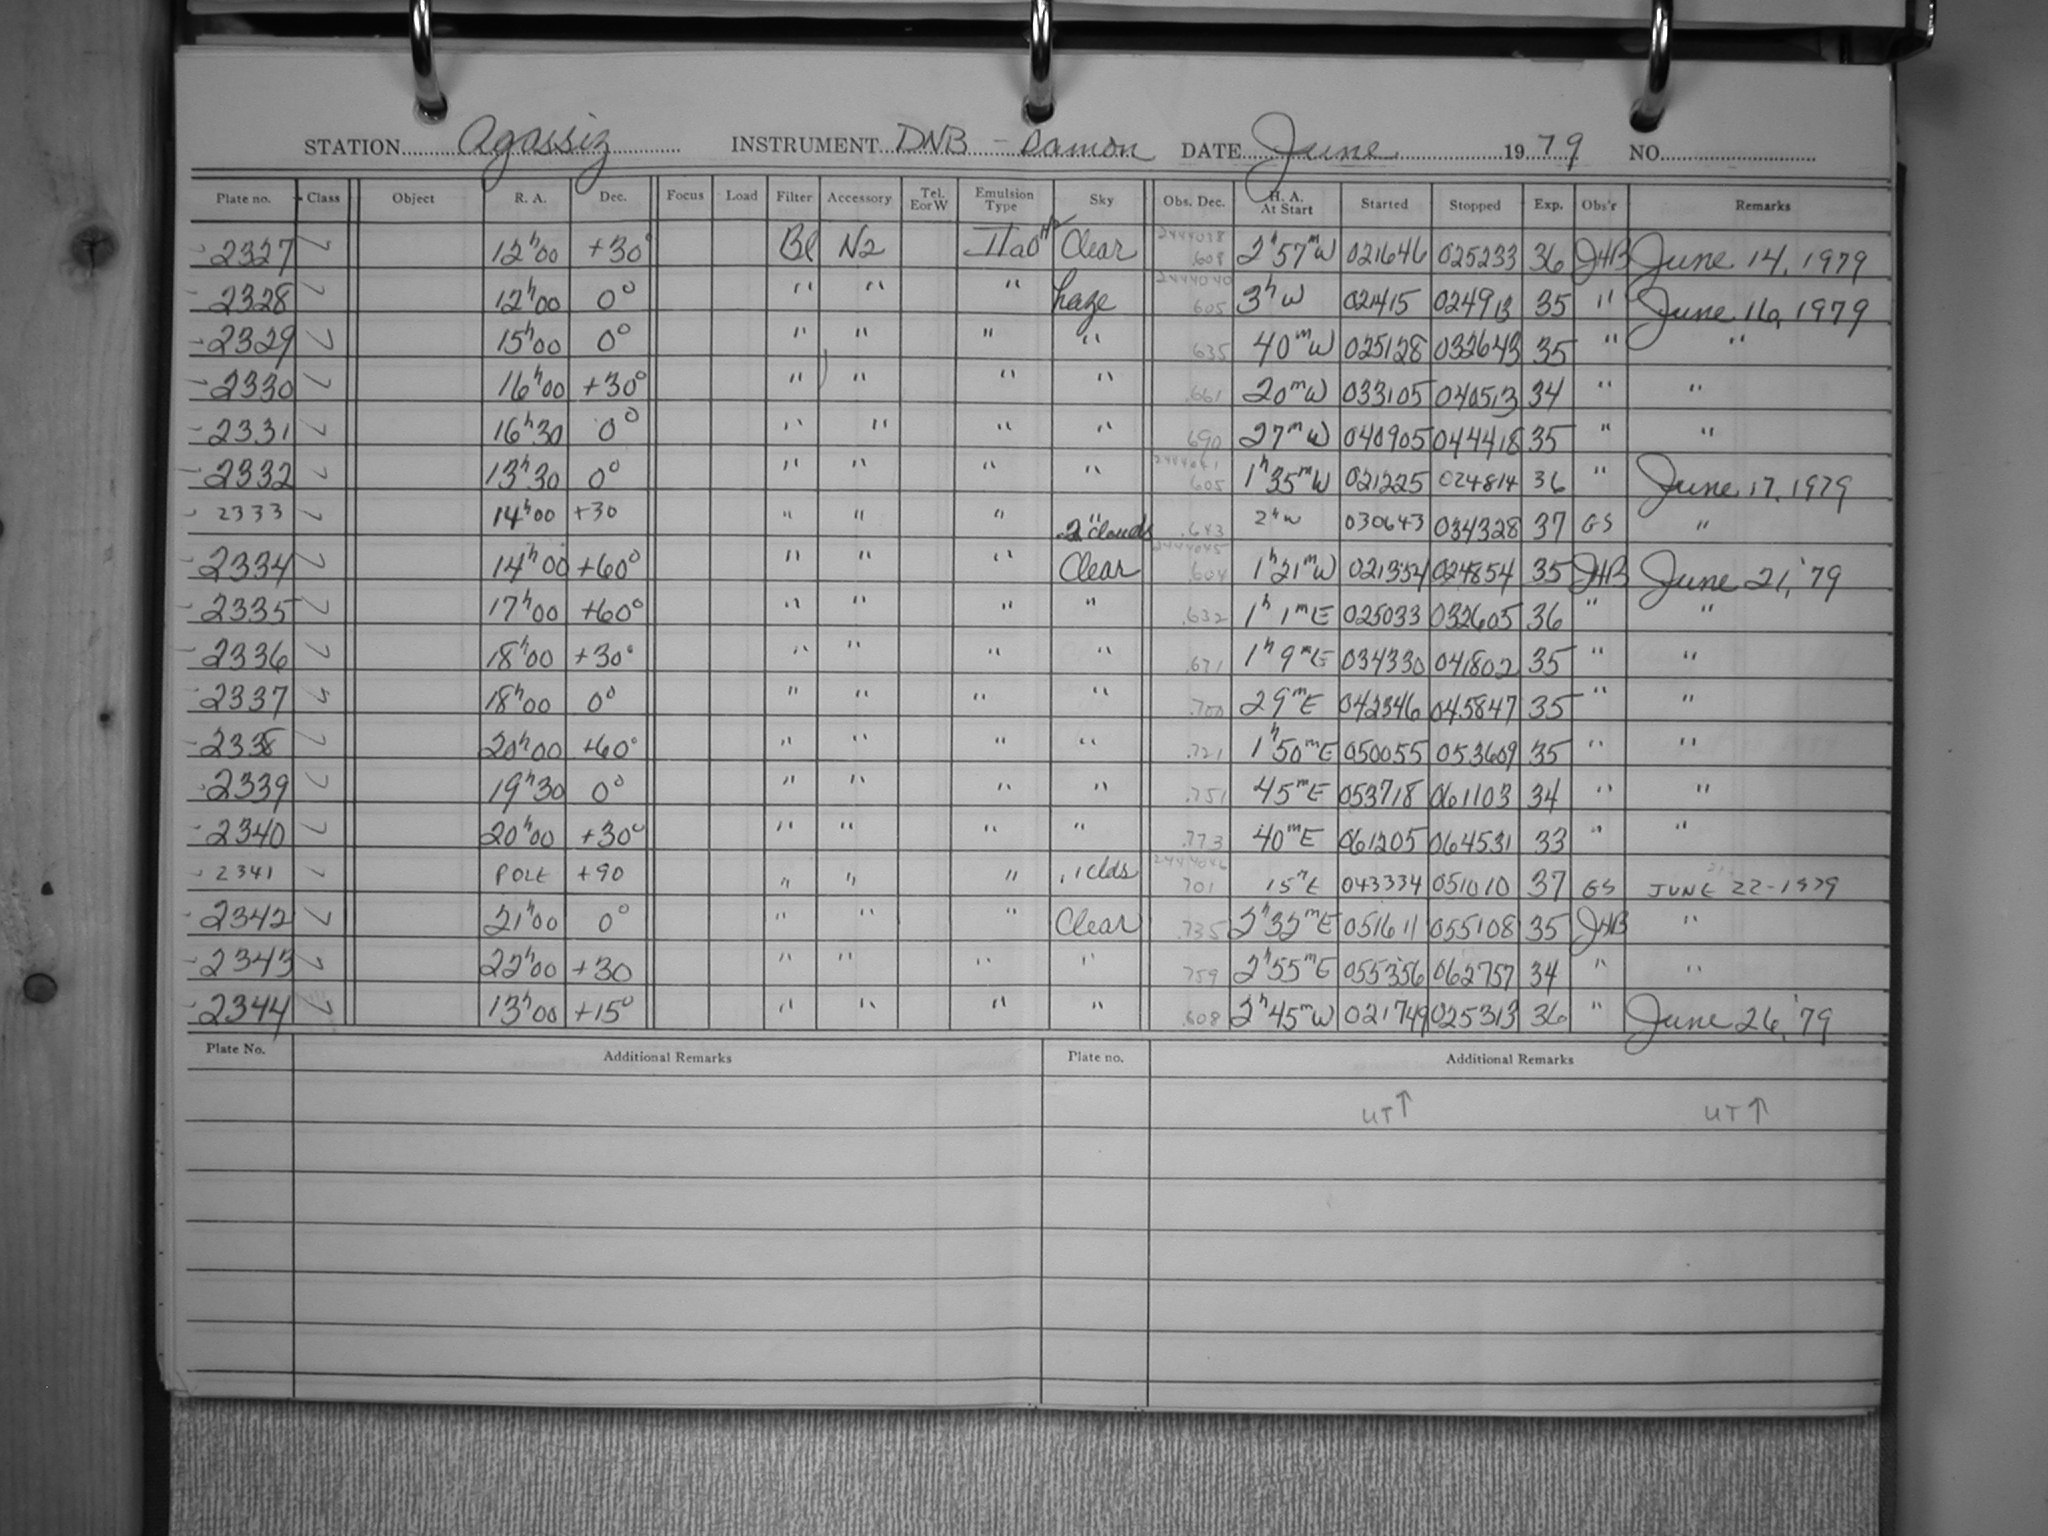 STATION Agassiz INSTRUMENT DNB - Damon DATE June 1979 NO.
Plate no. Class Object R. A. Dec. Focus Load Filter Accessory Tel. E or W Emulsion Type Sky Obs. Dec. H. A. At Start Started Stopped Exp. Obs'r Remarks
2327 ✓ 12ʰ00 +30° Bl N2 IIaO Clear 2444038 .608 2ʰ57ᵐW 021646 025233 36 JHB June 14, 1979
2328 ✓ 12ʰ00 0° " " " haze 2444040 .605 3ʰW 021415 024913 35 " June 16, 1979
2329 ✓ 15ʰ00 0° " " " " .635 40ᵐW 025128 032643 35 " "
2330 ✓ 16ʰ00 +30° " " " " .661 20ᵐW 033105 040513 34 " "
2331 ✓ 16ʰ30 0° " " " " .690 27ᵐW 040905 044418 35 " "
2332 ✓ 13ʰ30 0° " " " " 2444041 .605 1ʰ35ᵐW 021225 024814 36 " June 17, 1979
2333 ✓ 14ʰ00 +30 " " " " .2 clouds .643 2ʰW 030643 034328 37 GS "
2334 ✓ 14ʰ00 +60° " " " Clear 2444045 .604 1ʰ21ᵐW 021354 024854 35 JHB June 21, '79
2335 ✓ 17ʰ00 +60° " " " " .632 1ʰ1ᵐE 025033 032605 36 " "
2336 ✓ 18ʰ00 +30° " " " " .671 1ʰ9ᵐE 034330 041802 35 " "
2337 ✓ 18ʰ00 0° " " " " .700 29ᵐE 042346 045847 35 " "
2338 ✓ 20ʰ00 +60° " " " " .721 1ʰ50ᵐE 050055 053609 35 " "
2339 ✓ 19ʰ30 0° " " " " .751 45ᵐE 053718 061103 34 " "
2340 ✓ 20ʰ00 +30° " " " " .773 40ᵐE 061205 064531 33 " "
2341 ✓ POLE +90 " " " .1 clds 2444046 701 15ᵐE 043334 051010 37 GS JUNE 22-1979
2342 ✓ 21ʰ00 0° " " " Clear .735 2ʰ32ᵐE 051611 055108 35 JHB "
2343 ✓ 22ʰ00 +30 " " " " 759 2ʰ55ᵐE 055356 062757 34 " "
2344 ✓ 13ʰ00 +15° " " " " .608 2ʰ45ᵐW 021749 025313 36 " June 26, '79
Plate No. Additional Remarks Plate no. Additional Remarks
UT↑ UT↑